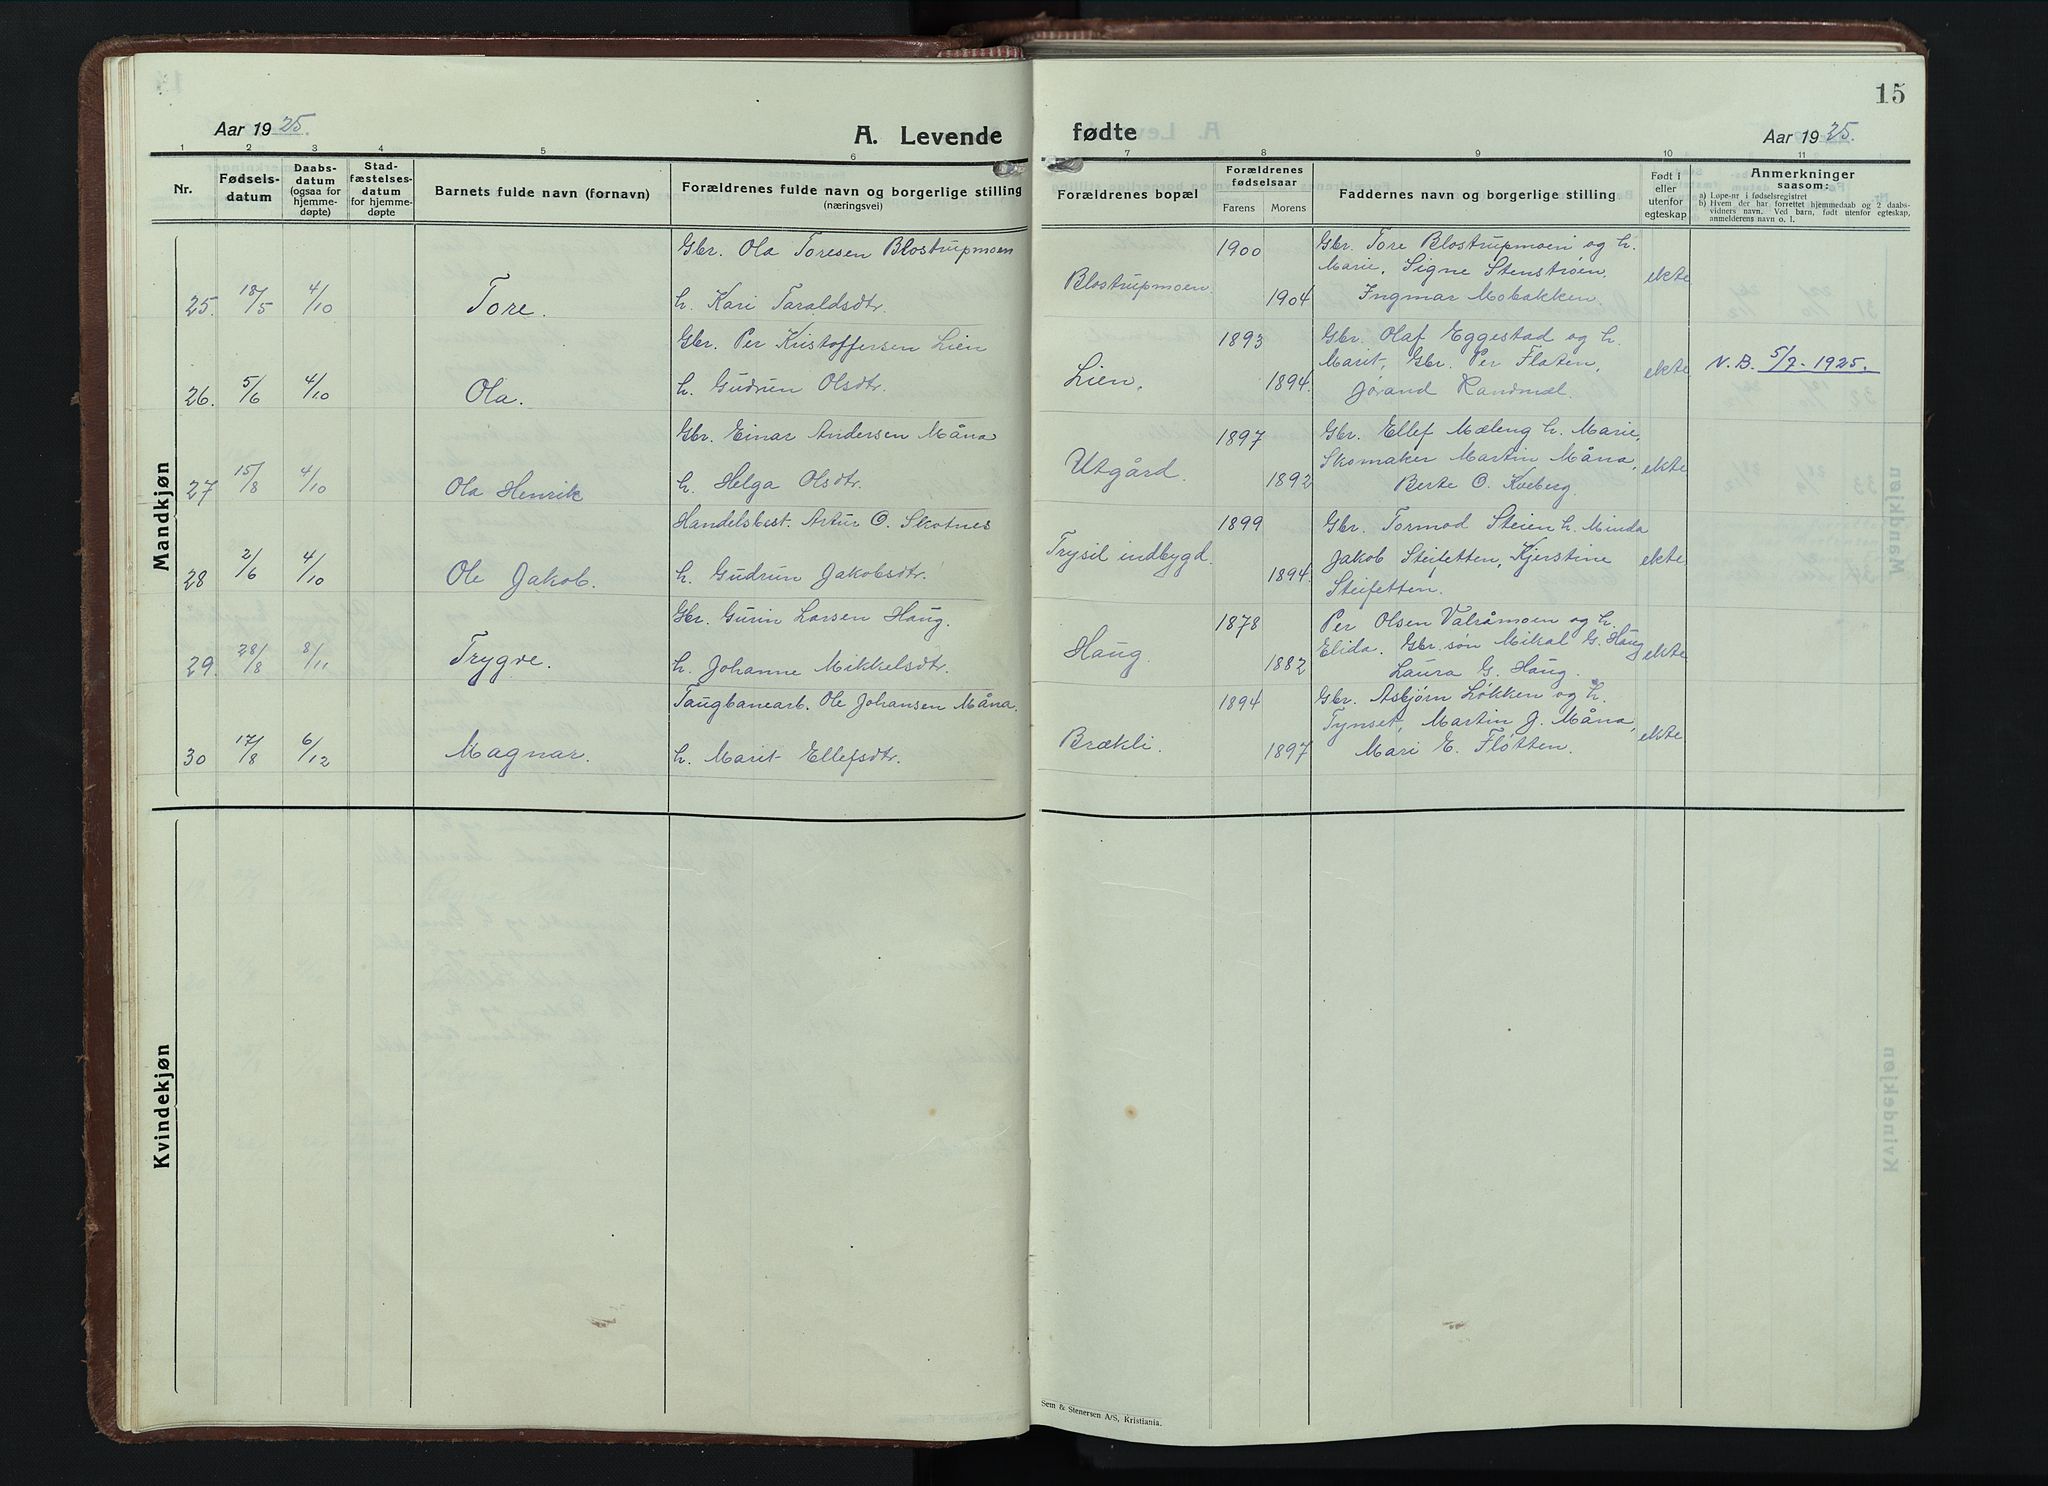 15
Aar 1925.
A. Levende
fødte
Aar 1925.
1 2 3 4 5 6 7 8 9 10 11
Nr.
Fødsels-
datum
Daabs-
datum
(ogsaa for
hjemme-
døpte)
Stad-
fæstelses-
datum
for hjemme-
døpte
Barnets fulde navn (fornavn)
Forældrenes fulde navn og borgerlige stilling
(næringsvei)
Forældrenes bopæl
Forældrenes
fødselsaar
Farens Morens
Faddernes navn og borgerlige stilling
Født i
eller
utenfor
egteskap
Anmerkninger
saasom:
a) Løpe-nr i fødselsregistret
b) Hvem der har forrettet hjemmedaab og 2 daabs-
vidners navn. Ved barn, født utenfor egteskap,
anmelderens navn o. l.
Mandkjøn
Gbr. Ola Toresen Blostrupmoen
25. 18/5 4/10 Tore. h. Kari Taraldsdtr.
Blostrupmoen. 1900 1904
Gbr. Tore Blostrupmoen og h.
Marie, Signe Stenstrøen.
Ingmar Mobakken.
ekte
Gbr. Per Kristoffersen Lien
26. 5/6 4/10 Ola. h. Gudrun Olsdtr.
Lien. 1893 1894.
Gbr. Olaf Eggestad og h.
Marit, Gbr. Per Flaten,
Jorand Randmæl.
ekte N.B. 5/7-1925.
Gbr. Einar Andersen Måna
27 15/8 4/10 Ola Henrik h. Helga Olsdtr.
Utgård. 1897 1892
Gbr. Ellef Mæleng h. Marie,
Skomaker Martin Måna,
Berte O. Kveberg.
ekte
Handelsbest. Artur O. Skotnes
28 2/6 4/10 Ole Jakob. h. Gudrun Jakobsdtr.
Trysil indbygd. 1899 1894.
Gbr. Tormod Steien h. Minda
Jakob Steifetten, Kjerstine
Steifetten.
ekte.
Gbr. Gurin Larsen Haug.
29. 28/8 8/11 Trygve. h. Johanne Mikkelsdtr.
Haug. 1878 1882
Per Olsen Valråmoen og h.
Elida. Gbr. søn Mikal G. Haug
Laura G. Haug.
ekte
Taugbanearb. Ole Johansen Måna.
30 17/8 6/12 Magnar. h. Marit Ellefsdtr.
Brækli. 1894 1897
Gbr. Asbjørn Løkken og h.
Tynset, Martin J. Måna,
Mari E. Fløtten.
ekte
Kvindekjøn
Sem & Stenersen A/S, Kristiania.